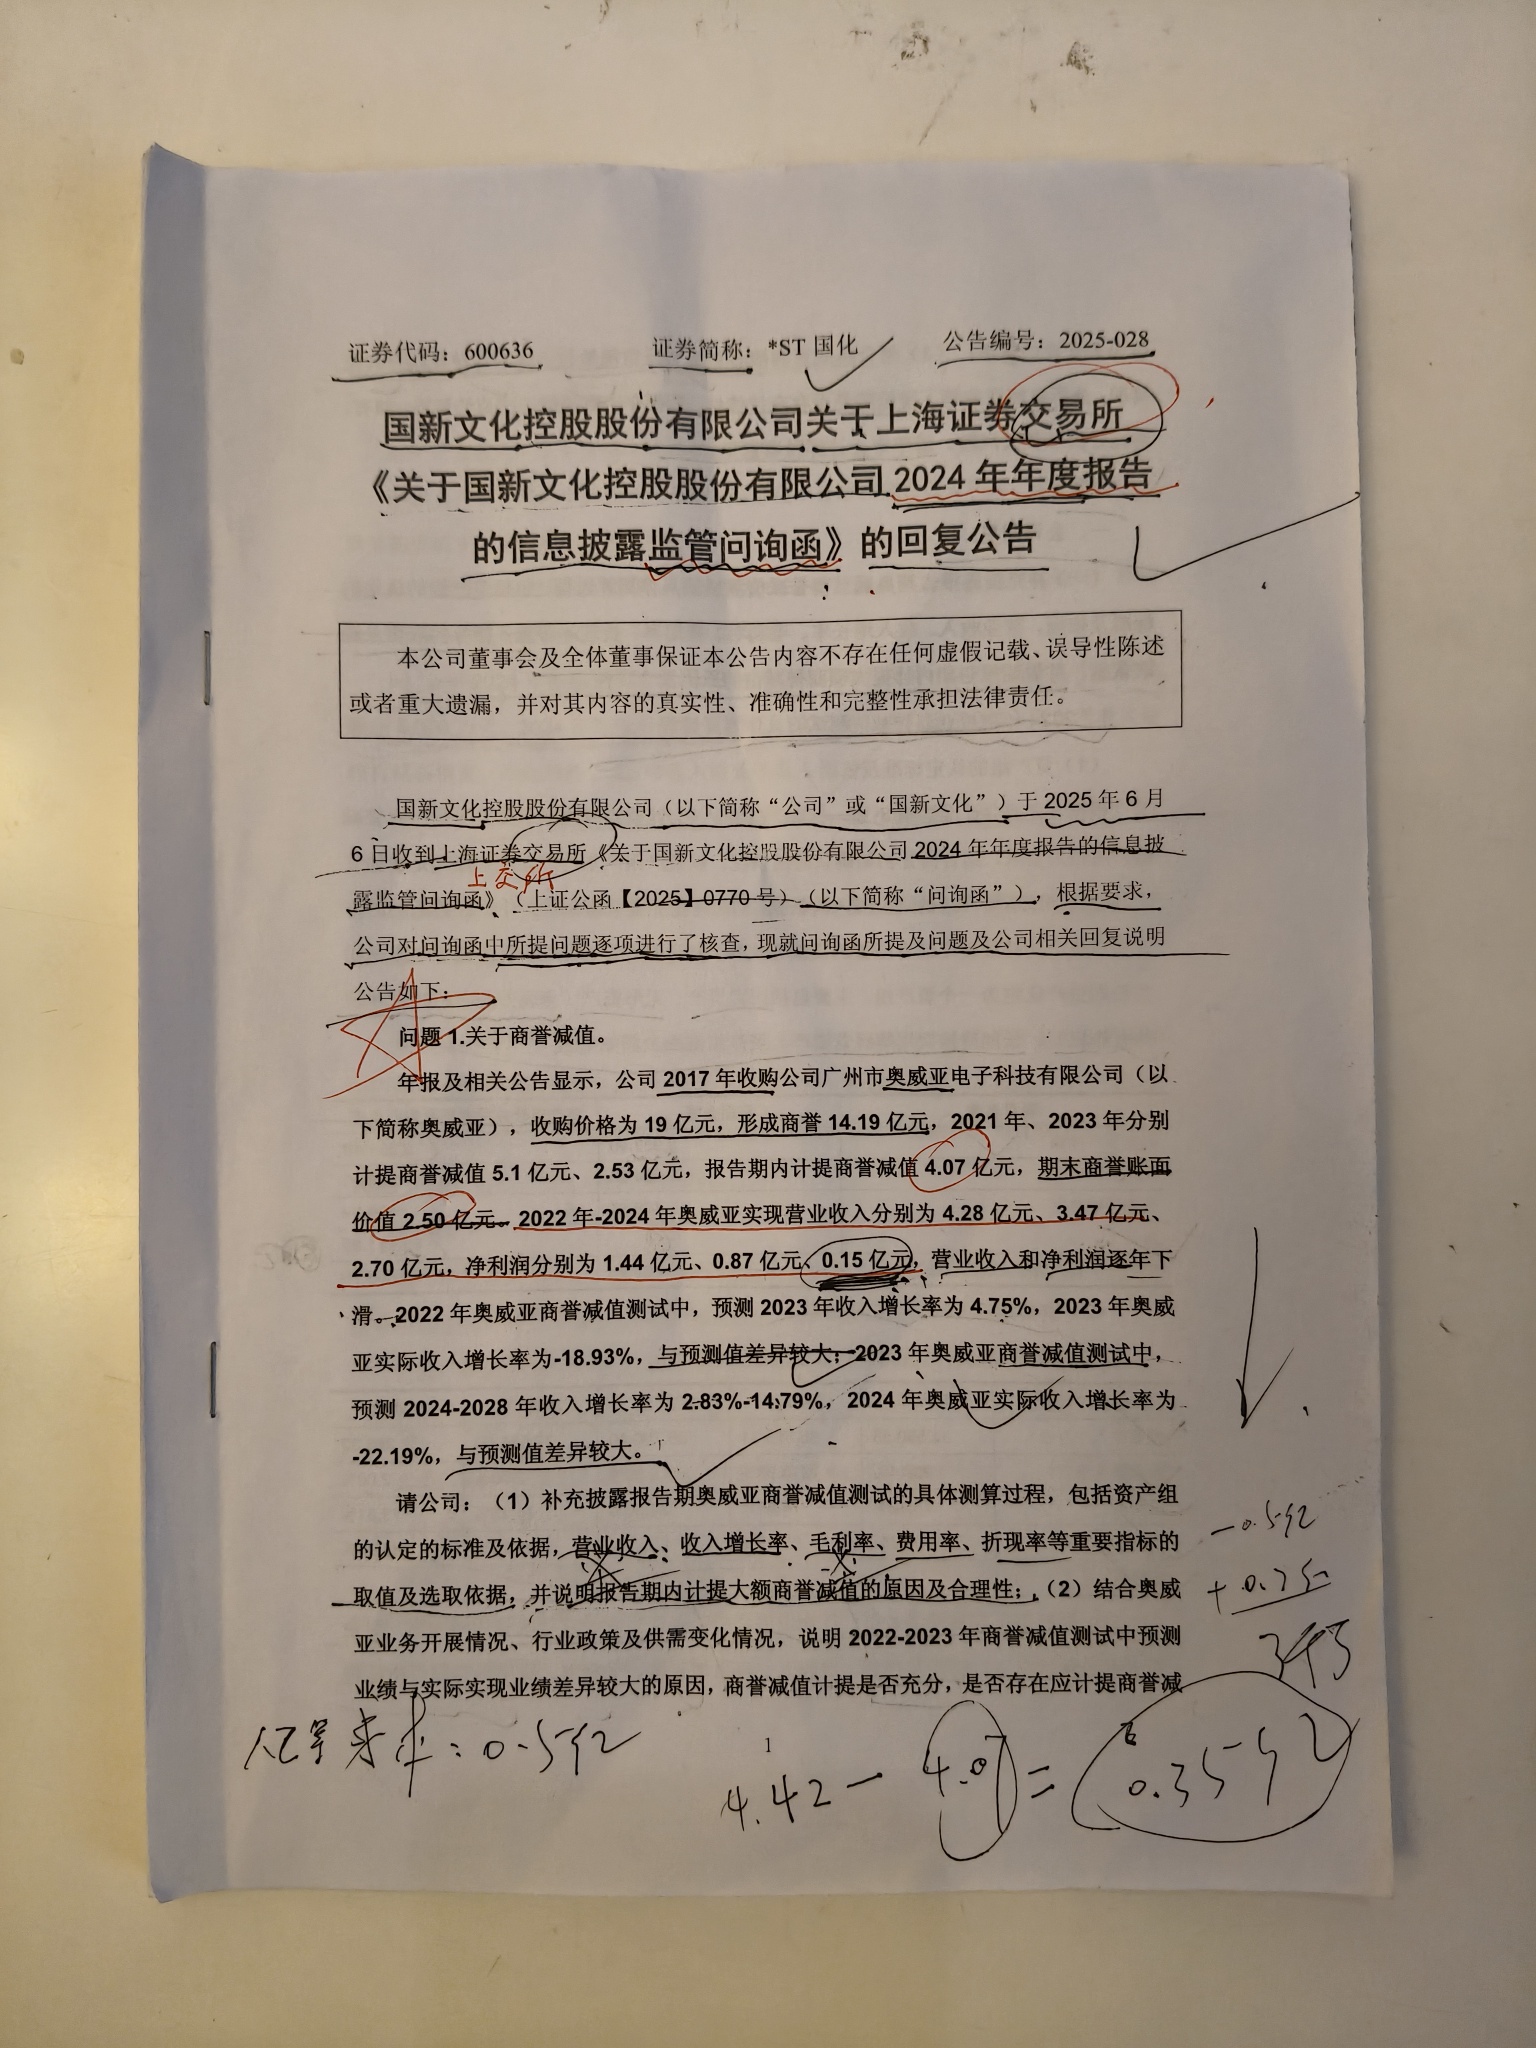 证券代码：600636 证券简称：*ST 国化 公告编号：2025-028
国新文化控股股份有限公司关于上海证券交易所
《关于国新文化控股股份有限公司 2024 年年度报告
的信息披露监管问询函》的回复公告
本公司董事会及全体董事保证本公告内容不存在任何虚假记载、误导性陈述
或者重大遗漏，并对其内容的真实性、准确性和完整性承担法律责任。
国新文化控股股份有限公司（以下简称“公司”或“国新文化”）于 2025 年 6 月
6 日收到上海证券交易所《关于国新文化控股股份有限公司 2024 年年度报告的信息披
上交所
露监管问询函》（上证公函【2025】0770 号）（以下简称“问询函”），根据要求，
公司对问询函中所提问题逐项进行了核查，现就问询函所提及问题及公司相关回复说明
公告如下：
问题 1.关于商誉减值。
年报及相关公告显示，公司 2017 年收购公司广州市奥威亚电子科技有限公司（以
下简称奥威亚），收购价格为 19 亿元，形成商誉 14.19 亿元，2021 年、2023 年分别
计提商誉减值 5.1 亿元、2.53 亿元，报告期内计提商誉减值 4.07 亿元，期末商誉账面
价值 2.50 亿元。2022 年-2024 年奥威亚实现营业收入分别为 4.28 亿元、3.47 亿元、
2.70 亿元，净利润分别为 1.44 亿元、0.87 亿元、0.15 亿元，营业收入和净利润逐年下
滑。2022 年奥威亚商誉减值测试中，预测 2023 年收入增长率为 4.75%，2023 年奥威
亚实际收入增长率为-18.93%，与预测值差异较大；2023 年奥威亚商誉减值测试中，
预测 2024-2028 年收入增长率为 2.83%-14.79%，2024 年奥威亚实际收入增长率为
-22.19%，与预测值差异较大。
请公司：（1）补充披露报告期奥威亚商誉减值测试的具体测算过程，包括资产组
的认定的标准及依据，营业收入、收入增长率、毛利率、费用率、折现率等重要指标的
-0.5亿
取值及选取依据，并说明报告期内计提大额商誉减值的原因及合理性；（2）结合奥威
亚业务开展情况、行业政策及供需变化情况，说明 2022-2023 年商誉减值测试中预测
业绩与实际实现业绩差异较大的原因，商誉减值计提是否充分，是否存在应计提商誉减
：0.5亿
1
4.42 - 4.07 = 0.35亿